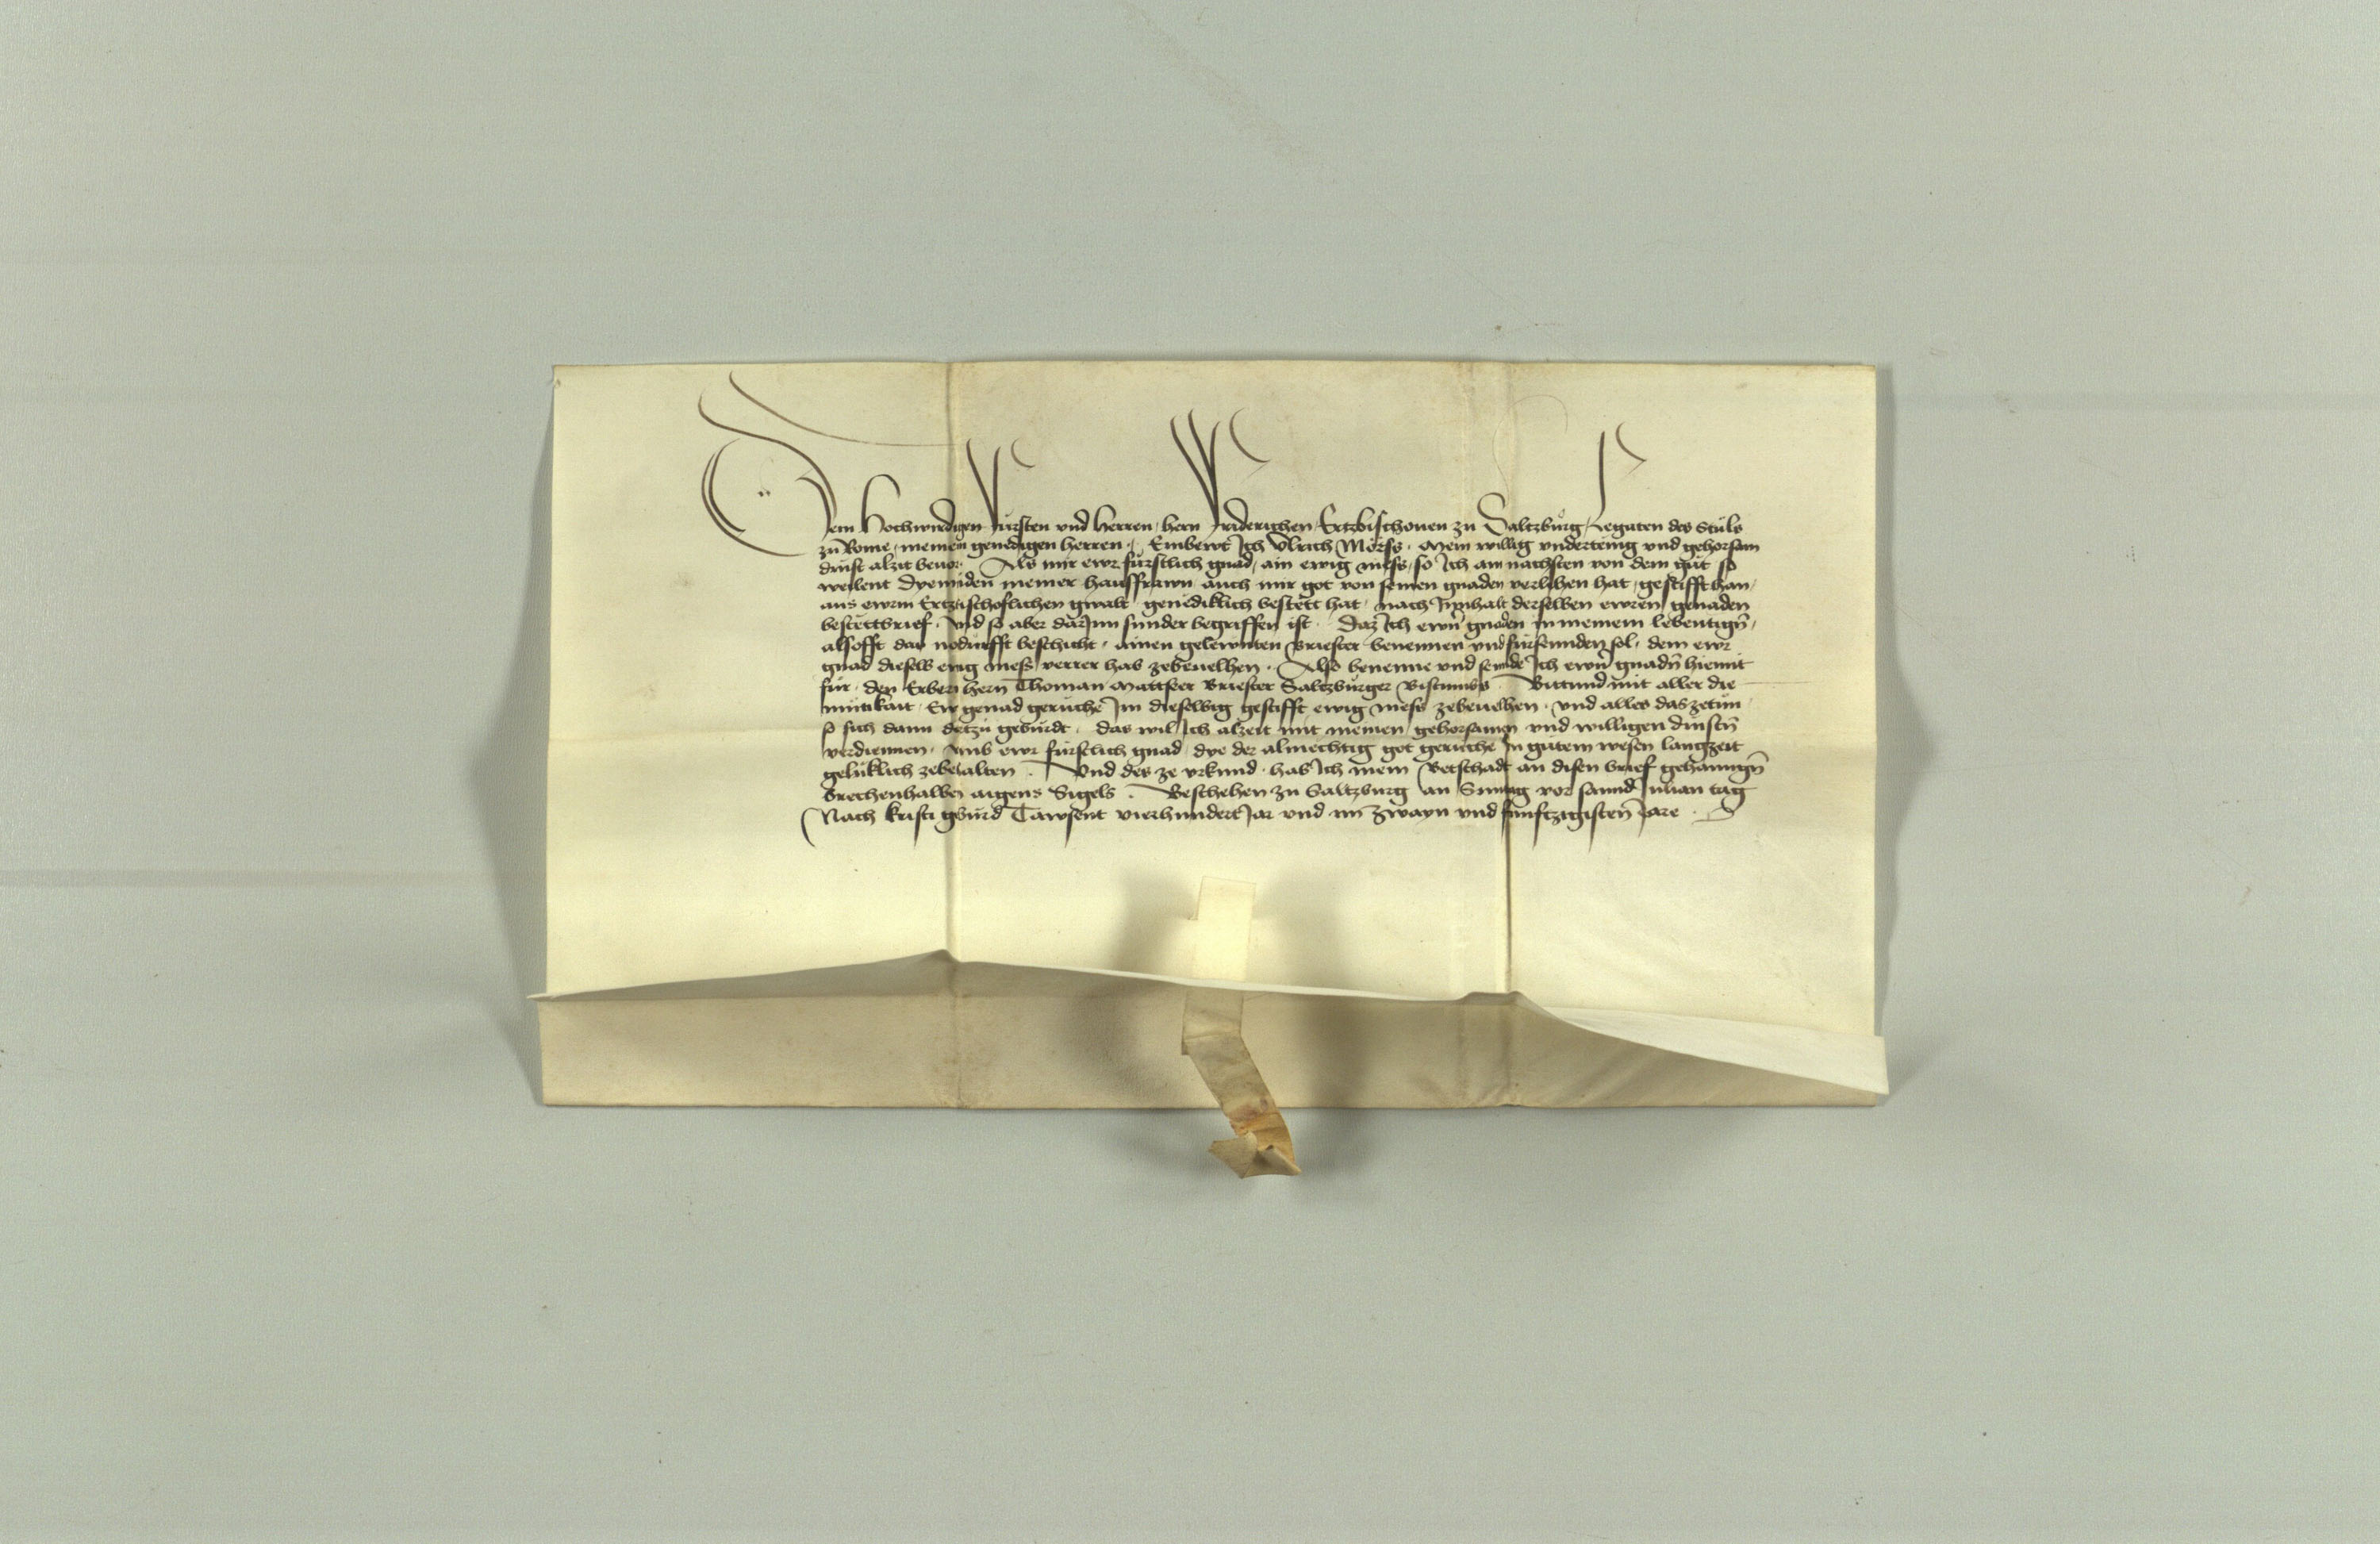 Dem Hochwirdigen Fürsten und Herren, hern Friderichen, Ertzbischouen zu Saltzbürg, Legaten des Stüls
zü Rome, meinem genedigen herren. Embewt Ich Vlrich Mörss. Mein willig vndertenig und gehorsam
dinst alzit beuor. Als mir ewr fürstlich gnad, ain ewig mess, so Ich am nachsten von dem güt so
weilent Dyemüden meiner hausffrawn auch mir got von seinen gnaden verlihen hat, gestifft han,
aus ewrm Ertzbischoflichen gwalt genediklich bestett hat, nach Innhalt derselben ewren genaden
bestettbrief. Und so aber dar Inn sunder begriffen ist. Daz Ich ewrn̄ gnaden in meinem lebentign̄,
alsofft das nodürfft beschicht, ainen gelewnten Briester benennen und fürsennden sol, dem ewr
gnad dieselb ewig mess verrer hab zebeuelhen. Also benenne und sennde Ich ewrn̄ gnadn̄ hiemit
für, den Erbern hern̄ Thoman Mattseer Briester Saltzbürger Bistumbs. Bittund mit aller die
mütikait, Ewr genad gerüche Im dieselbig gestifft ewig mess zebeuelhen, und alles das zetün,
so sich dann dartzü gebürdt, das wil Ich alzeit mit meinen gehorsamen und willigen dinstn̄
verdiennen, umb ewr fürstlich gnad, dye der almechtig got gerüche in gütem wesen langzeit
gelüklich zebehalten. Und des ze vrkund, hab Ich mein Betschadt an disen brief gehanngn̄
Brechenhalben aigens Sigels. Beschehen zu Saltzburg an Sunntag vor sannd Julian tag
Nach kristi gebürd Tawsent vierhundert Jar und im̄ zwayn und fünftzigisten̄ Jare.